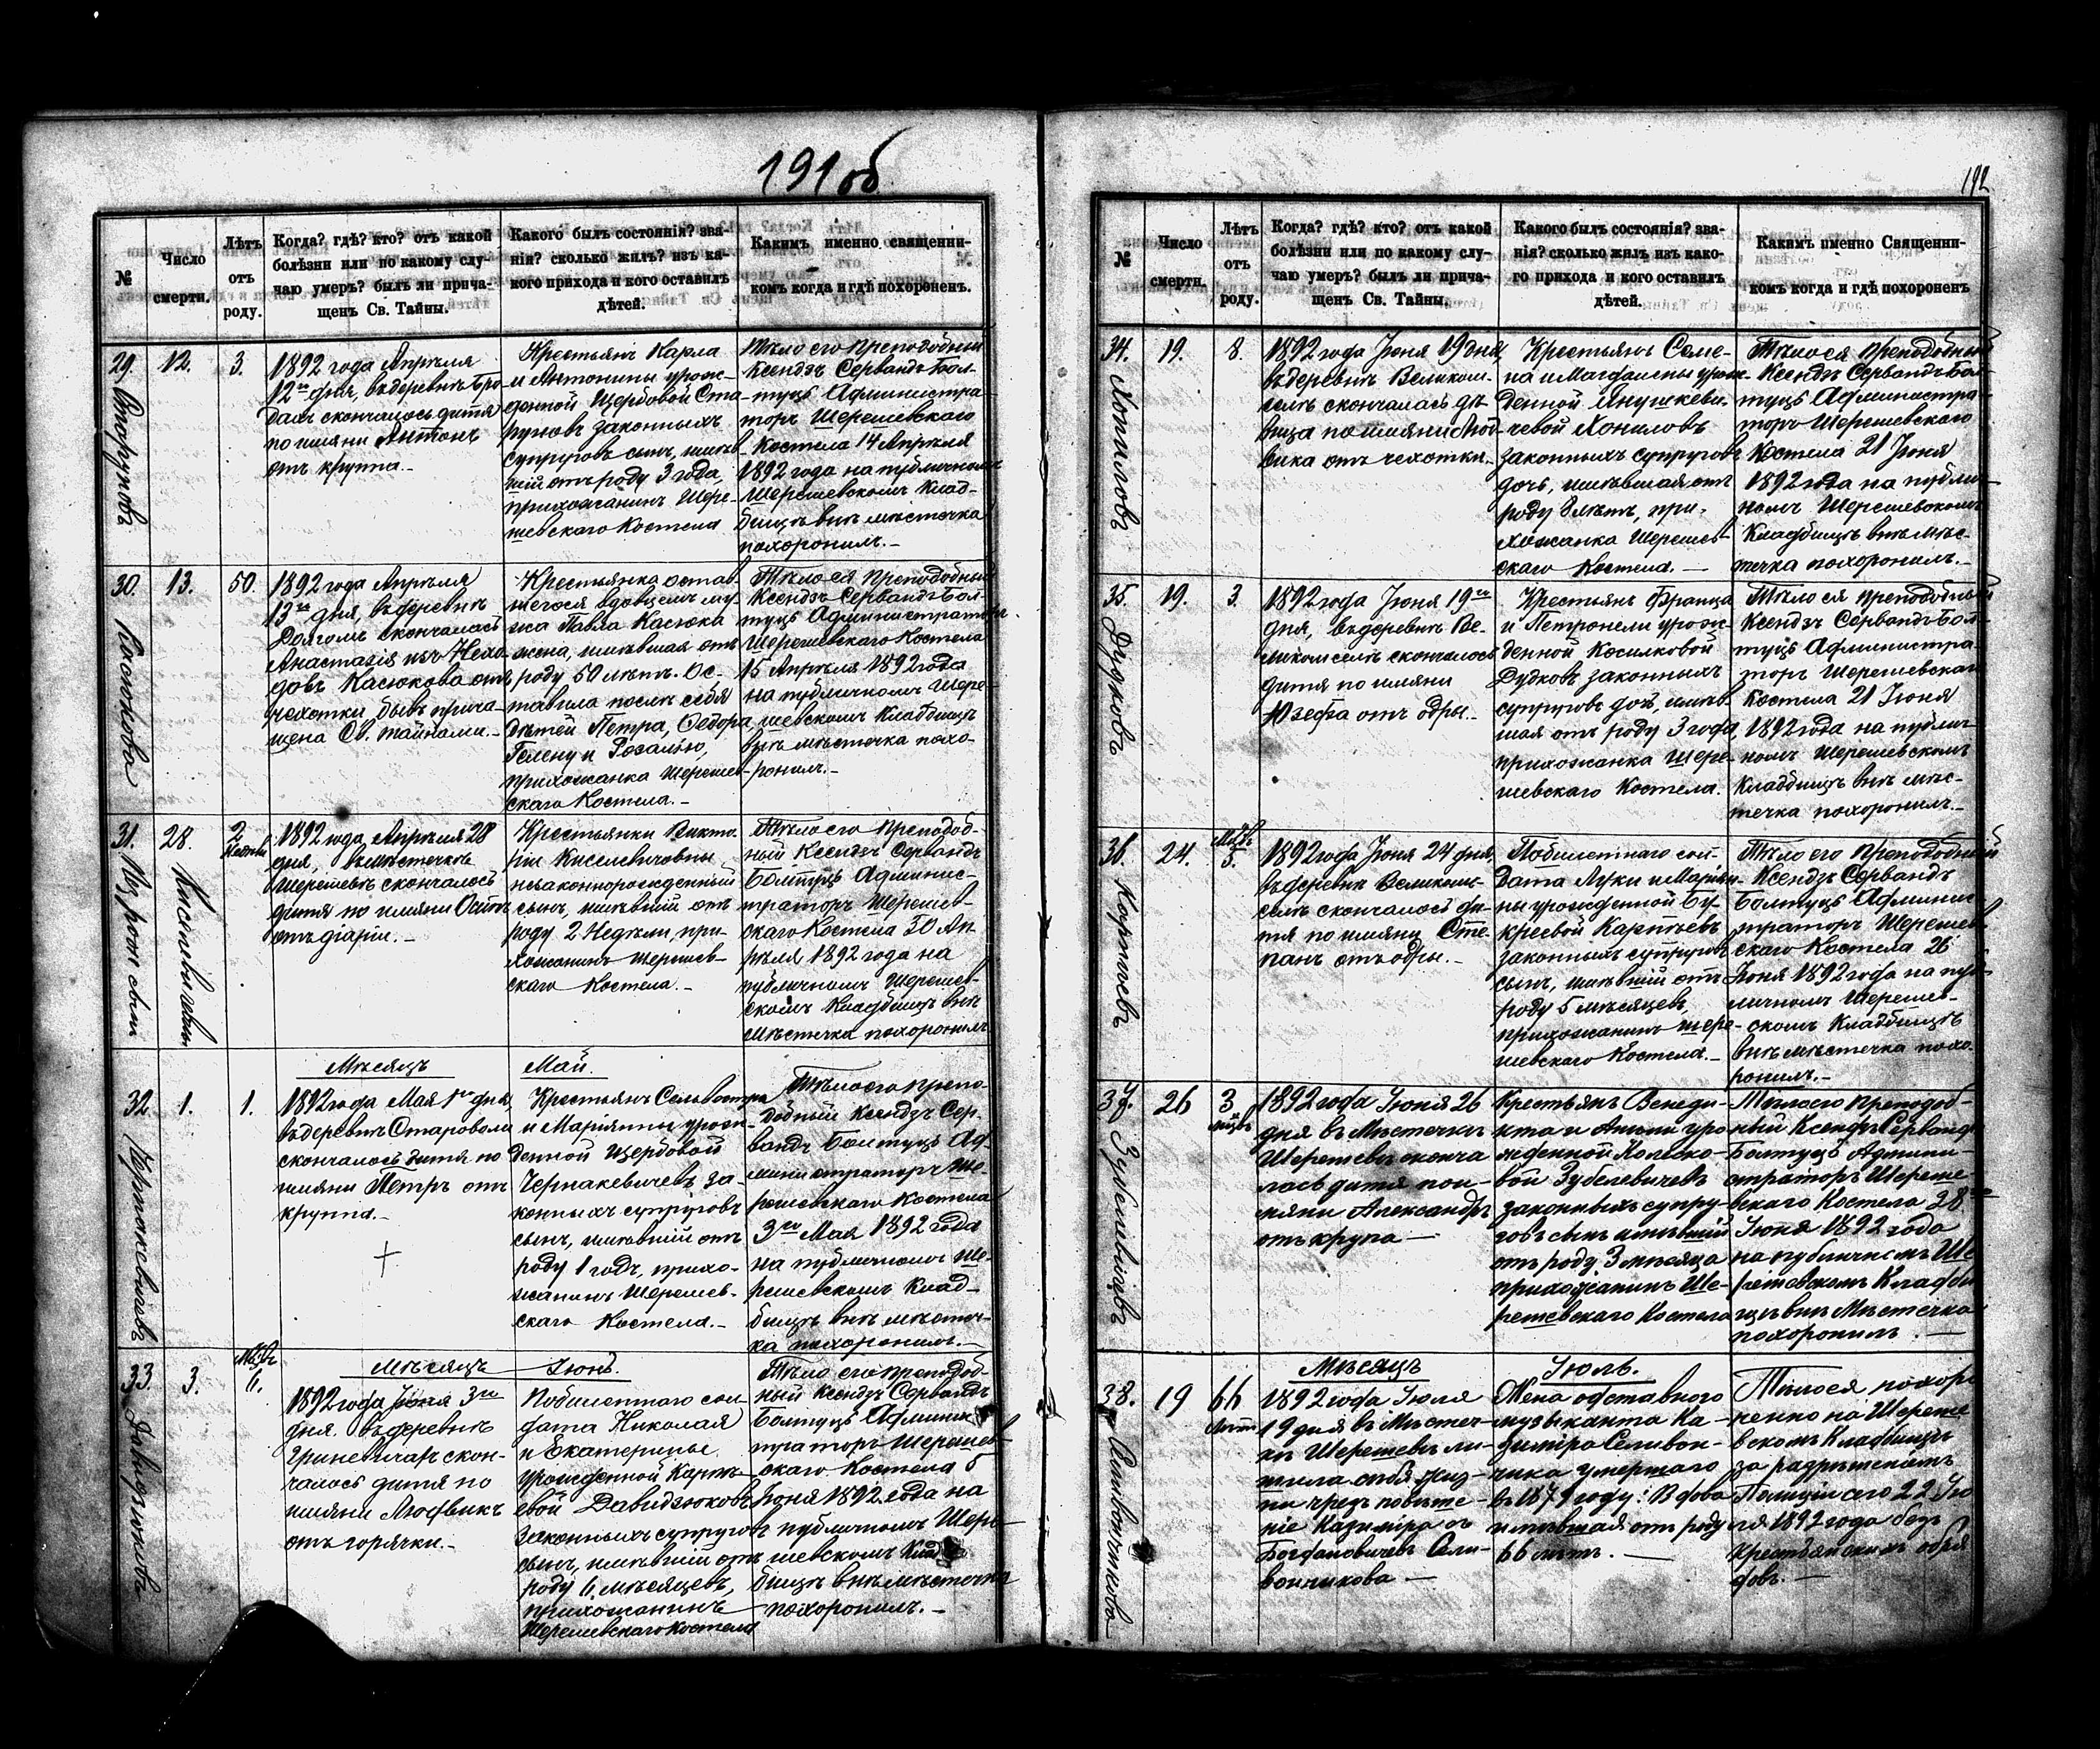 191 об
№
Число
смерти.
Лѣтъ
отъ
роду.
Когда? гдѣ? кто? отъ какой
болѣзни или по какому слу-
чаю умеръ? былъ ли прича-
щенъ Св. Тайны.
Какого былъ состоянія? зва-
нія? сколько жилъ? изъ ка-
кого прихода и кого оставилъ
дѣтей.
Какимъ именно священни-
комъ когда и гдѣ похороненъ.
29.
12.
3.
1892 года Апрѣля
12го дня, въ деревнѣ
скончалось дитя
по имяни Антонъ
отъ круппа.-
Крестьянъ Карла
и Антонины урож-
денной Щербовой Ста-
руновъ законныхъ
супруговъ сынъ, имѣв-
шій отъ роду 3 года,
прихожанинъ Шере-
шевскаго Костела
Тѣло его Преподобный
Ксендзъ Сервандъ Бол-
туць Администра-
торъ Шерешевскаго
Костела 14 Апрѣля
1892 года на публичномъ
Шерешевскомъ Клад-
бищѣ внѣ мѣстечка
похоронилъ.-
30.
13.
50.
Касюкова
1892 года Апрѣля
13го дня, въ деревнѣ
Долгомъ скончалась
Анастазія изъ
Касюкова отъ
чехотки, бывъ прича-
щена Св. тайнами.-
Крестьянка остав-
шегося вдовцемъ му-
жа Павла Касюка
жена, имѣвшая отъ
роду 50 лѣтъ. Ос-
тавила послѣ себя
дѣтей Петра, Ѳедора,
Гелену и Розалію,
прихожанка Шерешев-
скаго Костела.-
Тѣло ея Преподобный
Ксендзъ Сервандъ Бол-
туць Администраторъ
Шерешевскаго Костела
15 Апрѣля 1892 года
на публичномъ Шере-
шевскомъ Кладбищѣ
внѣ мѣстечка похо-
ронилъ.-
31.
28.
2
Недѣли
1892 года Апрѣля 28
дня, въ мѣстечкѣ
Шерешевѣ скончалось
дитя по имяни Осипъ
отъ діаріи.-
Крестьянки Викто-
ріи Киселевичовны
незаконнорожденный
сынъ, имѣвшій отъ
роду 2 Недѣли, при-
хожанинъ Шерешев-
скаго Костела.-
Тѣло его Преподоб-
ный Ксендзъ Сервандъ
Болтуць Админис-
траторъ Шерешев-
скаго Костела 30 Ап-
рѣля 1892 года на
публичномъ Шерешев-
скомъ Кладбищѣ внѣ
мѣстечка похоронилъ
Мѣсяцъ
Май.
32.
1.
1.
Чернакевичевъ
1892 года Мая 1го дня,
въ деревнѣ Староволи
скончалось дитя по
имяни Петръ отъ
круппа.-
Крестьянъ Сельвестра
и Маріянны урож-
денной Щербовой
Чернакевичевъ за-
конныхъ супруговъ
сынъ, имѣвшій отъ
роду 1 годъ, прихо-
жанинъ Шерешев-
скаго Костела.-
Тѣло его Препо-
добный Ксендзъ Сер-
вандъ Болтуць Ад-
министраторъ Ше-
решевскаго Костела
3го Мая 1892 года
на публичномъ Ше-
решевскомъ Клад-
бищѣ внѣ мѣстеч-
ка похоронилъ.-
Мѣсяцъ
Іюнь.
33.
3.
6.
Давидзюковъ
1892 года Іюня 3го
дня въ деревнѣ
Гриневичахъ скон-
чалось дитя по
имяни Людвикъ
отъ горячки.-
Побилетнаго сол-
дата Николая
и Екатерины
урожденной
Давидзюковъ
законныхъ супруговъ
сынъ, имѣвшій отъ
роду 6 мѣсяцевъ,
прихожанинъ
Шерешевскаго Костела
Тѣло его Преподоб-
ный Ксендзъ Сервандъ
Болтуць Админис-
траторъ Шерешев-
скаго Костела 5
Іюня 1892 года на
публичномъ Шере-
шевскомъ Клад-
бищѣ внѣ мѣстечка
похоронилъ.-
192
№
Число
смерти.
Лѣтъ
отъ
роду.
Когда? гдѣ? кто? отъ какой
болѣзни или по какому слу-
чаю умеръ? былъ ли прича-
щенъ Св. Тайны.
Какого былъ состоянія? зва-
нія? сколько жилъ изъ како-
го прихода и кого оставилъ
дѣтей.
Какимъ именно Священни-
комъ когда и гдѣ похороненъ
34.
19.
8.
Хониловъ
1892 года Іюня 19 дня
въ деревнѣ Великом-
селѣ скончалась дѣ-
вица по имяни Люд-
вика отъ чехотки.-
Крестьянъ Семе-
на и Магдалены урож-
денной Янушкеви-
чевой Хониловъ
законныхъ супруговъ
дочь, имѣвшая отъ
роду 8 лѣтъ, при-
хожанка Шерешев-
скаго Костела.-
Тѣло ея Преподобный
Ксендзъ Сервандъ Бол-
туць Администра-
торъ Шерешевскаго
Костела 21 Іюня
1892 года на публич-
номъ Шерешевскомъ
Кладбищѣ внѣ мѣс-
течка похоронилъ.-
35.
19.
3.
Дудковъ
1892 года Іюня 19го
дня, въ деревнѣ Ве-
ликомселѣ скончалось
дитя по имяни
Юзефа отъ одры.-
Крестьянъ Франца
и Петронели урож-
денной Косилковой
Дудковъ законныхъ
супруговъ дочь, имѣв-
шая отъ роду 3 года
прихожанка Шере-
шевскаго Костела.
Тѣло ея Преподобный
Ксендзъ Сервандъ Бол-
туць Администра-
торъ Шерешевскаго
Костела 21 Іюня
1892 года на публич-
номъ Шерешевскомъ
Кладбищѣ внѣ мѣс-
течка похоронилъ.-
36.
24.
5.
Карпіевъ
1892 года Іюня 24 дня,
въ деревнѣ Великом-
селѣ скончалось ди-
тя по имяни Сте-
панъ отъ одры.-
Побилетнаго сол-
дата Луки и Маріян-
ны урожденной Бу-
креевой Карпіевъ
законныхъ супруговъ
сынъ, имѣвшій отъ
роду 5 мѣсяцевъ,
прихожанинъ Шере-
шевскаго Костела.-
Тѣло его Преподобный
Ксендзъ Сервандъ
Болтуць Админис-
траторъ Шерешев-
скаго Костела 26
Іюня 1892 года на пуб-
личномъ Шерешев-
скомъ Кладбищѣ
внѣ мѣстечка похо-
ронилъ.-
37.
26
3
Зубелевичевъ
1892 года Іюня 26
дня въ Мѣстечкѣ
Шерешевѣ сконча
лось дитя по и-
мяни Александръ
отъ крупа —
Крестьянъ Венеди-
кта и Анели уро
жденной Колеско-
вой Зубелевичевъ
законныхъ супру-
говъ сынъ имѣвшій
отъ роду 3 мѣсяца
прихожанинъ Ше-
решевскаго Костела
Тѣло его Преподоб-
ный Ксендзъ Сервандъ
Болтуць Админи-
страторъ Шереше-
вскаго Костела 28го
Іюня 1892 года
на публичномъ Ше
решевскомъ Кладби
щѣ внѣ Мѣстечка
похоронилъ. —
Мѣсяцъ
Іюль.
38.
19
66
лѣтъ
Селивончикова
1892 года Іюля
19 дня въ Мѣстеч-
кѣ Шерешевѣ ли-
шила себя жиз-
ни чрезъ повѣше-
ніе Казиміра съ
Богдановичевъ Сели-
вончикова —
Жена отставного
музыканта Ка-
зиміра Селивон-
чика умершаго
въ 1879 году: Вдова
имѣвшая отъ роду
66 лѣтъ. —
Тѣло ея похоро
ненно на Шереше
вскомъ Кладбищѣ
за разрѣшеніемъ
Полиціи сего 22 Iю
ля 1892 года безъ
христіанскихъ обря
довъ. —